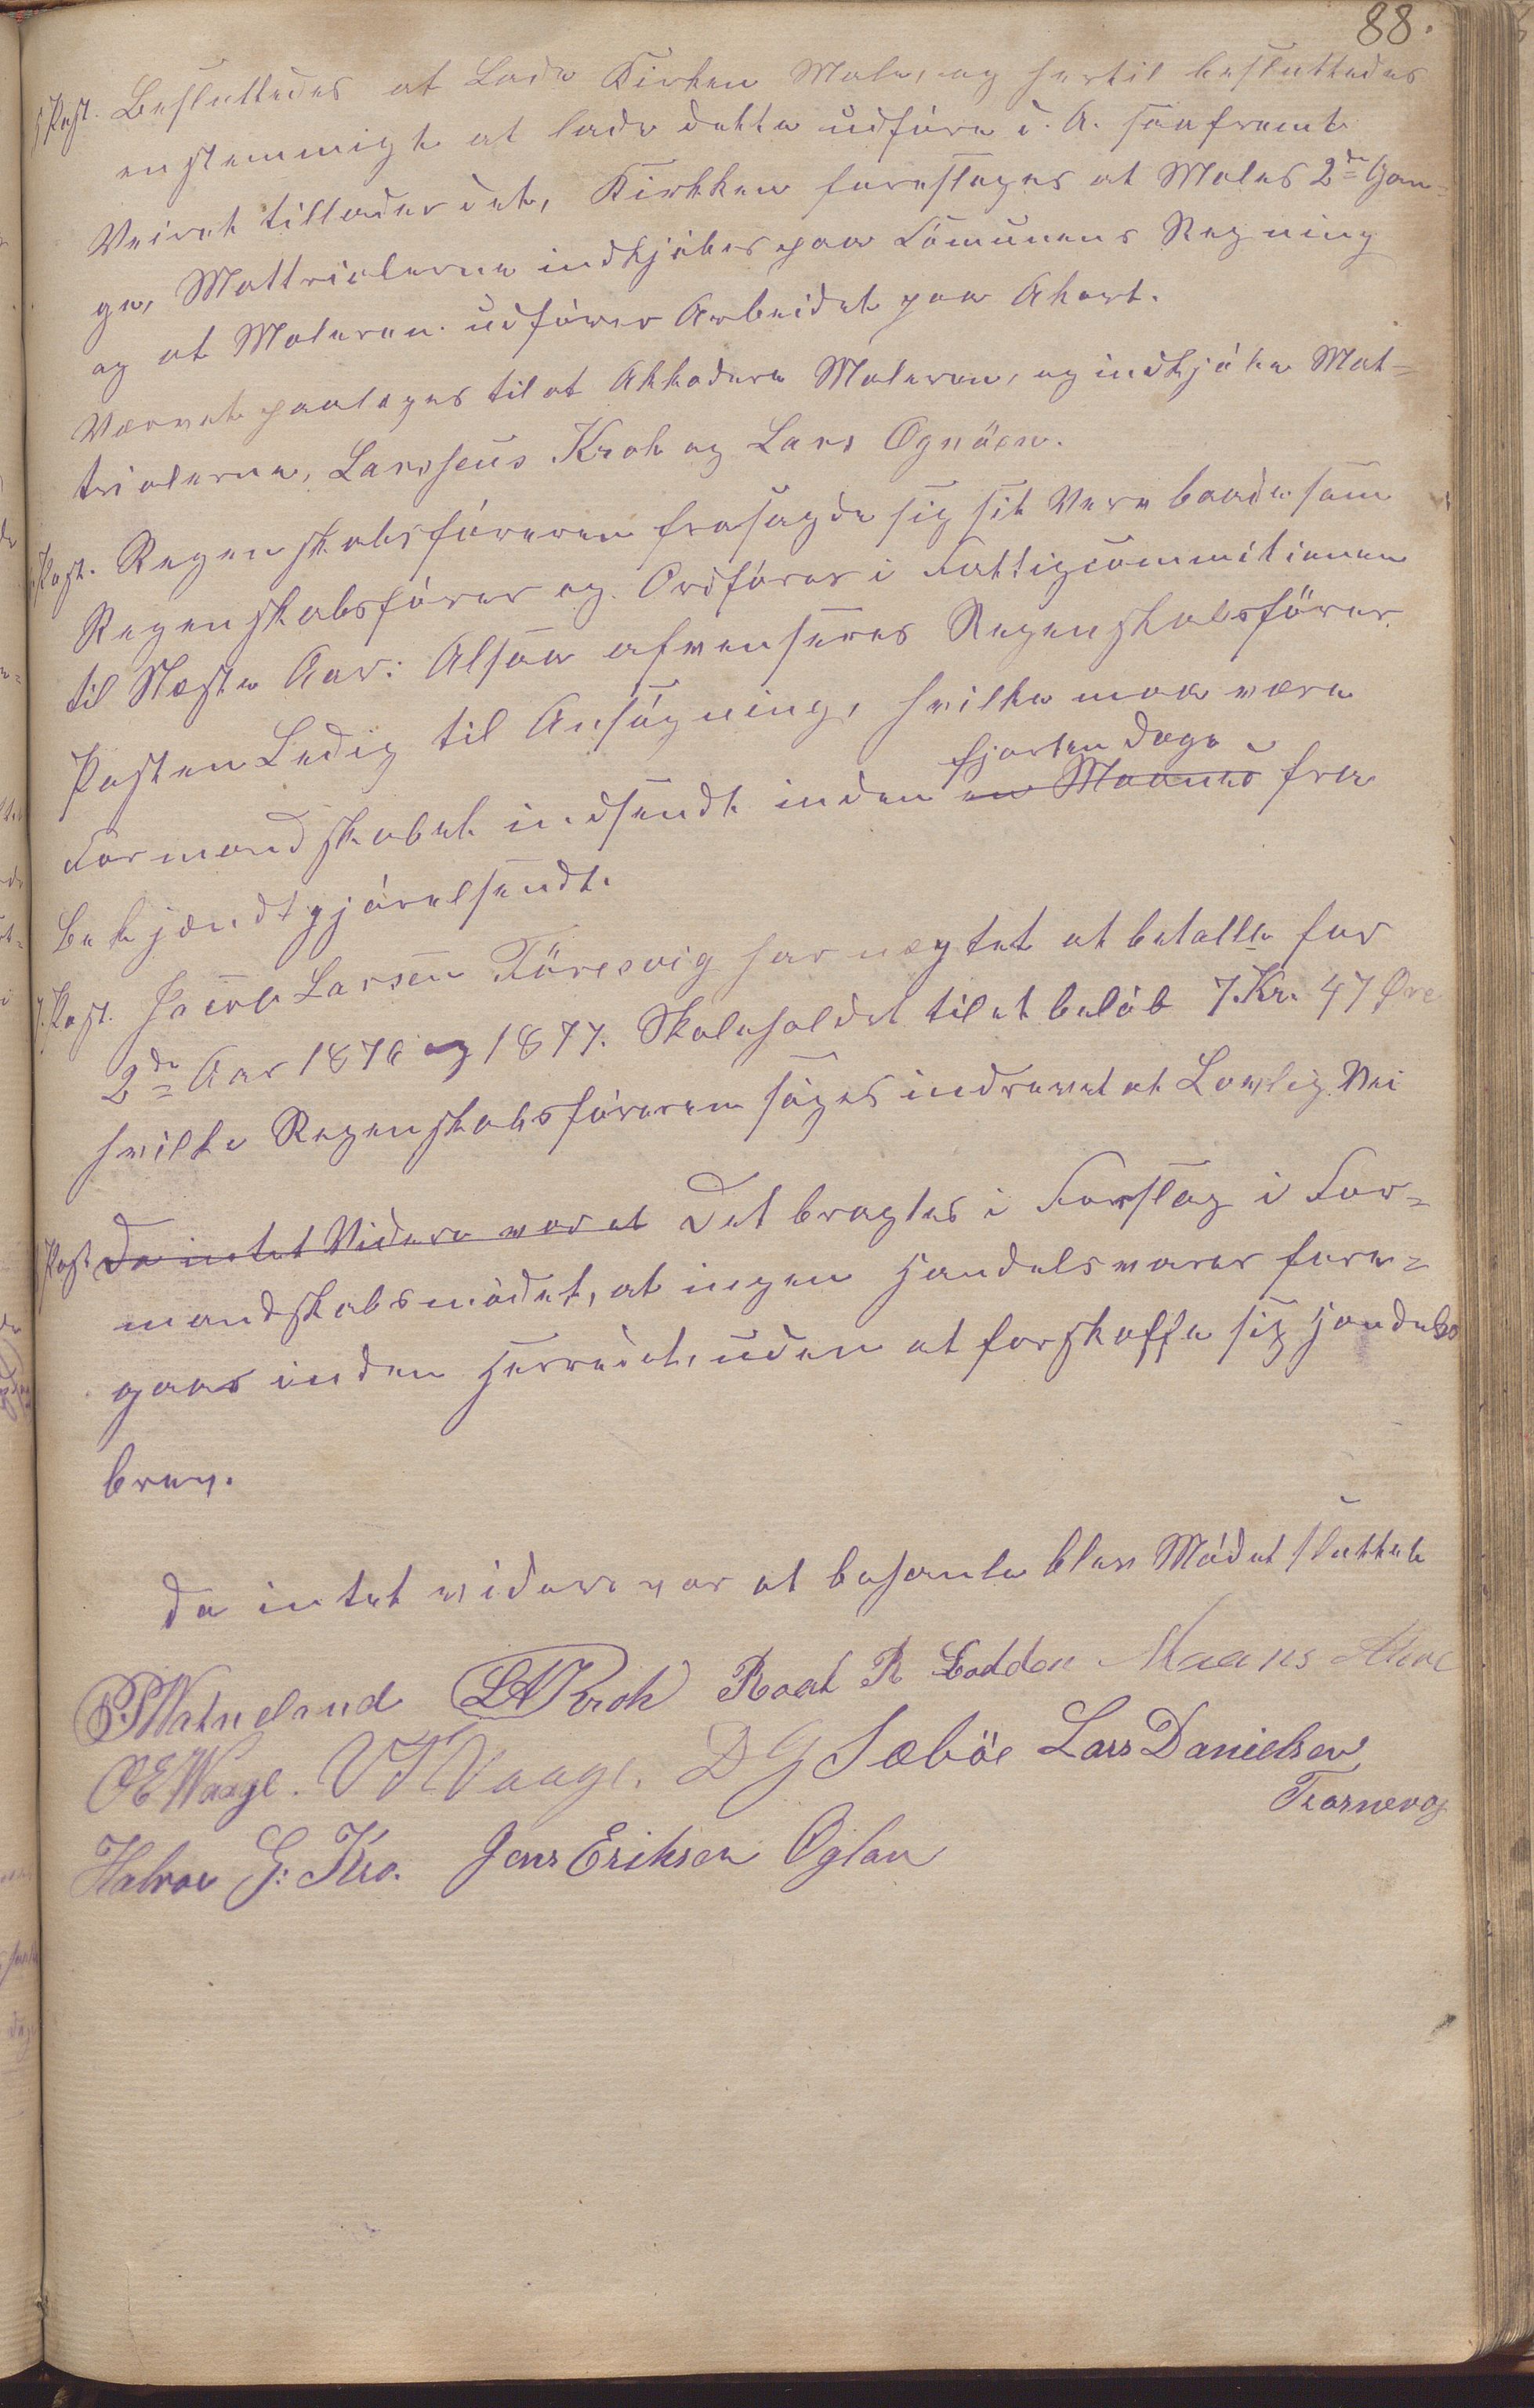 88.
5 Post. Besluttedes at Lade Kirken Male, og hertil besluttedes
enstemmigt at lade dette udføre i. A. saafremt
Veiret tillader det, Kirkken foreslages at Males 2de Gan-
ge, Mattrialerne indkjøbes paa Comunens Regning
og at Maleren udfører Arbeidet paa Akort.
Vervet paalages til at Akkodere Maleren, og indkjøbe Mat-
trialerne, Larsseus Kroh og Lars Ognøen.
Post. Regenskabsføreren frasagde sig sit Verv baade som
Regenskabsfører og Ordfører i Fattigcommitionen
til Næste Aar: Alsaa afvenseres Regenskabsfører
Posten Ledig til Ansøgning, hvilke maa være
fjorten Dage
Formandskabet indsendt inden en Maaned fra
bekjendtgjørelsendt.
7. Post. Jacob Larsen Föresvig har nægtet at betalle for
2de Aar 1876 og 1877. Skoleholdet til et beløb 7. Kr. 47 Øre
hvilke Regenskabsføreren søges indrevet at Lovlig Vei
Post Da intet Videre var at Det bragtes i Forslag i For-
mandskabsmødet, at ingen Handelsvarer fore-
gaar inden Herredet, uden at forskaffe sig Handels
brev.
Da intet videre var at behanle blev Mødet sluttet
P. Watneland LA Kroh Roat R Loddon Maans
OE Waage. VTVaage. D G Sæböe Lars Danielsen
Tranevog
Halvor G: Kro. Jens Eriksen Øglan